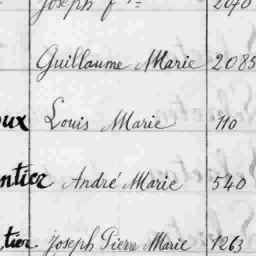 Joseph f^in 2040
Guillaume Marie 2085
oux Louis Marie 110
ntier André Marie 540
tier Joseph Pierre Marie 1263